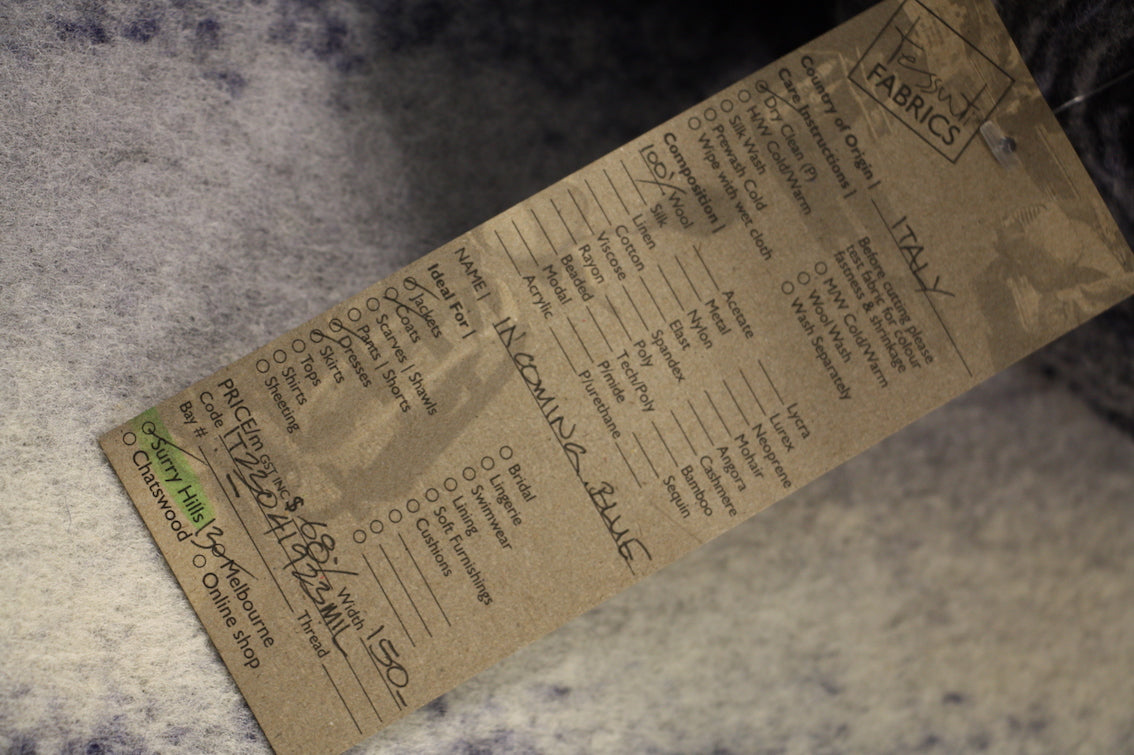 Tessuti
FABRICS
Country of Origin | ITALY
Care Instructions |
Dry Clean (P)
H/W Cold/Warm
Silk Wash
Prewash Cold
Wipe with wet cloth
Before cutting please
test fabric for colour
fastness & shrinkage
M/W Cold/Warm
Wool Wash
Wash Separately
Composition |
100% Wool
Silk
Linen
Cotton
Viscose
Rayon
Beaded
Modal
Acrylic
Acetate
Metal
Nylon
Elast
Spandex
Poly
Tech/Poly
P/mide
P/urethane
Lycra
Lurex
Neoprene
Mohair
Angora
Cashmere
Bamboo
Sequin
NAME | INCOMING BLUE
Ideal For |
Jackets
Coats
Scarves | Shawls
Pants | Shorts
Dresses
Skirts
Tops
Shirts
Sheeting
Bridal
Lingerie
Swimwear
Lining
Soft Furnishings
Cushions
PRICE/m GST INC $ 68 Width 150
Code IT22041923MIL
Bay # Thread
Surry Hills 130 Melbourne
Chatswood Online shop